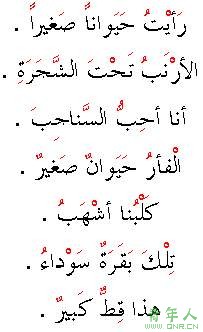 رَأَيْتُ حَيَواناً صَغيراً .
الأَرْنَبُ تَحْتَ الشَّجَرَةِ .
أنا أُحِبُّ السَّناجِبَ .
الْفأرُ حَيَوانٌ صَغيرٌ .
كَلْبُنا أَشْهَبُ .
تِلْكَ بَقَرَةٌ سَوْداءُ .
هذا قِطٌّ كَبيرٌ .
青年人
WWW.QNR.CN